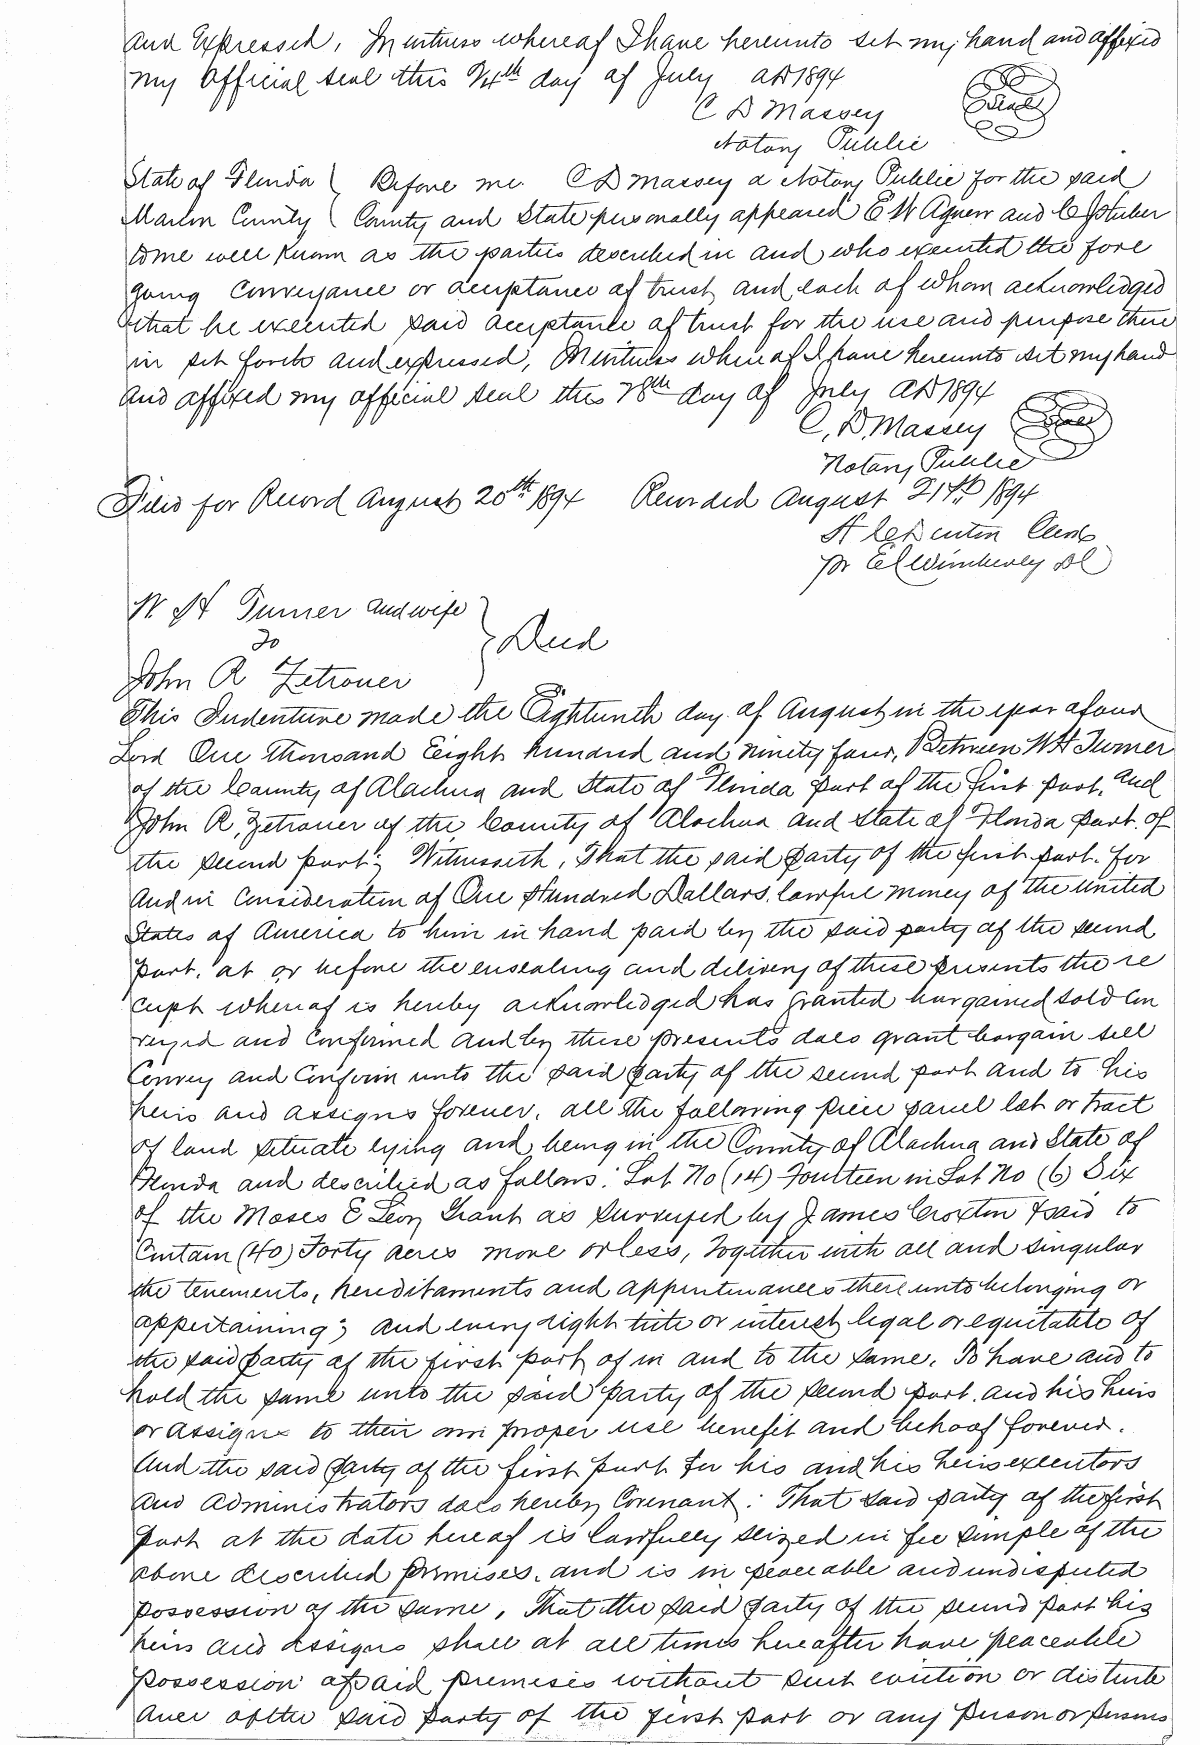 and Expressed, In witness whereof I have hereunto set my hand and affixed
my official seal this 24th day of July AD 1894
C D Massey
Notary Public
Seal
State of Florida ( Before me C D Massey a Notary Public for the said
Marion County ( County and State personally appeared E W Agnew and
to me well known as the parties described in and who executed the fore
going conveyance or acceptance of trust and each of whom acknowledged
that he executed said acceptance of trust for the use and purpose there
in set forth and expressed, In witness whereof I have hereunto set my hand
and affixed my official seal this 28th day of July AD 1894
C, D, Massey
Seal
Notary Public
Filed for Record August 20th 1894 Recorded August 21st 1894
Clerk
pr E C Wimberly DC
W. H Turner and wife
To
Deed
John R Zetrouer
This Indenture made the Eighteenth day of August in the year of our
Lord One Thousand Eight hundred and ninety four, Between W H Turner
of the County of Alachua and State of Florida part of the first part, and
John R, Zetrouer of the County of Alachua and State of Florida part. of
the second part; Witnesseth, That the said party of the first part. for
and in consideration of One Hundred Dollars, lawful money of the United
States of America to him in hand paid by the said party of the second
part, at or before the ensealing and delivery of these presents the re
ceipt whereof is hereby acknowledged has granted bargained sold con
veyed and confirmed and by these presents does grant bargain sell
Convey and Confirm unto the said party of the second part and to his
heirs and assigns forever, all the following piece parcel lot or tract
of land situate lying and being in the County of Alachua and State of
Florida and described as follows: Lot No (14) Fourteen in Lot No (6) Six
of the Moses E Levy Grant as surveyed by James Croxton & said to
Contain (40) Forty acres more or less, Together with all and singular
the tenements, hereditaments and appurtenances thereunto belonging or
appertaining; and every right title or interest legal or equitable of
the said party of the first part of in and to the same. To have and to
hold the same unto the said party of the second part. and his heirs
or assigns to their own proper use benefit and behoof forever.
And the said party of the first part for his and his heirs executors
and administrators does hereby Covenant: That said party of the first
part at the date hereof is lawfully seized in fee simple of the
above described premises, and is in peaceable and undisputed
possession of the same, That the said party of the second part his
heirs and assigns shall at all times hereafter have peaceable
possession of said premises without suit eviction or disturb
ance of the said party of the first part or any person or persons